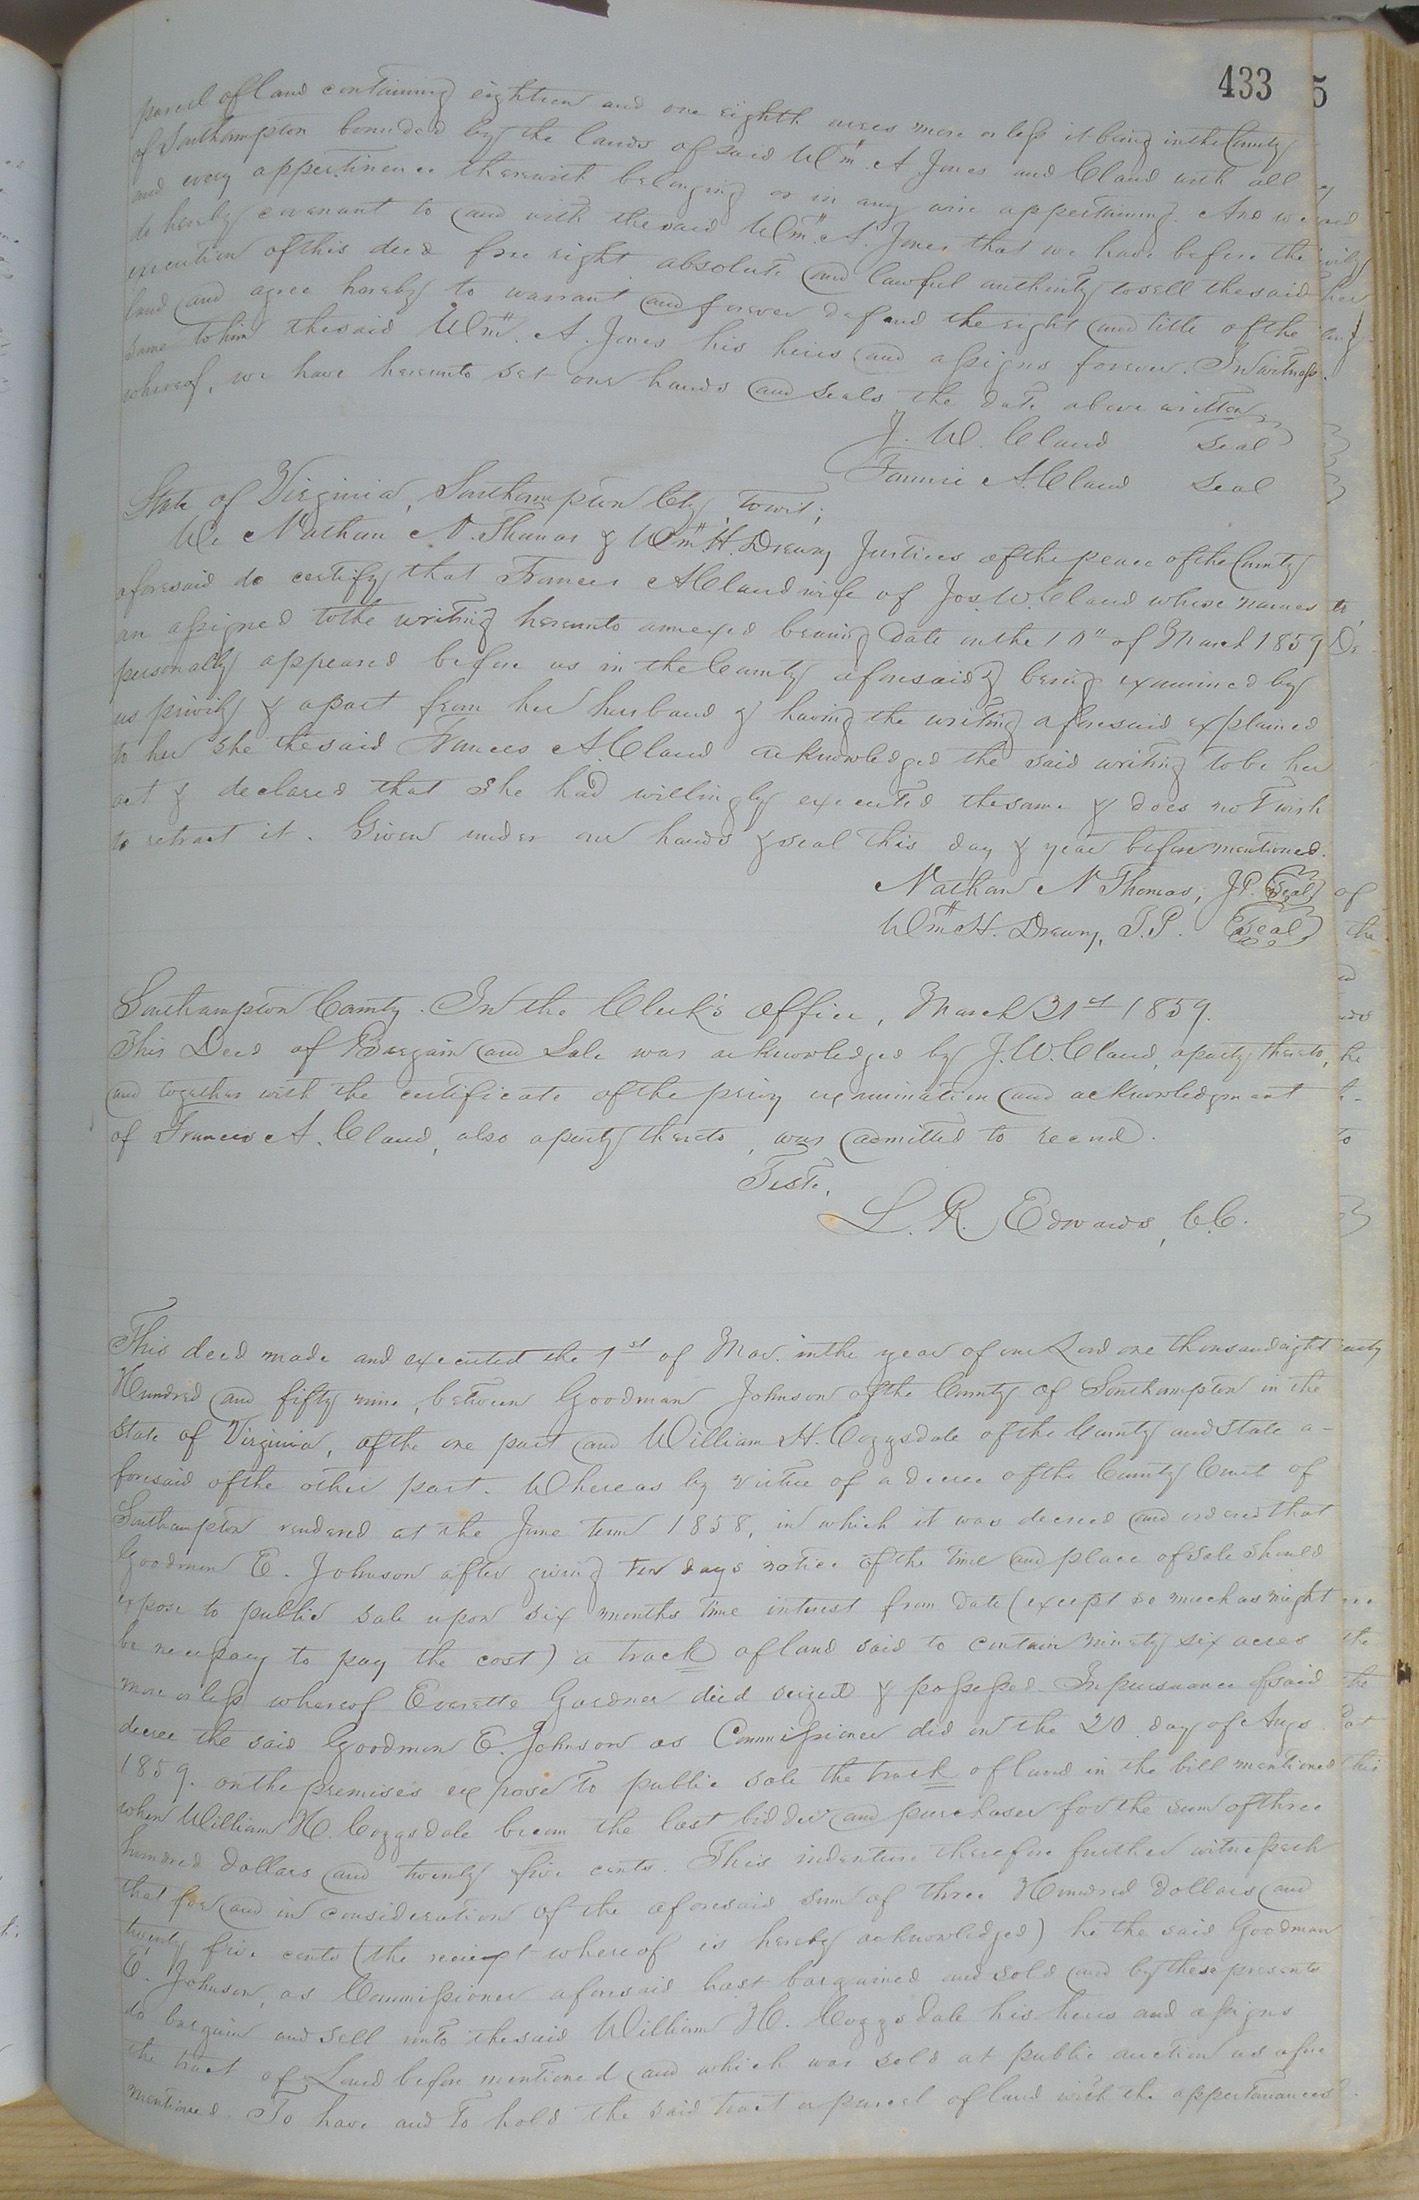 433
parcel of land containing eighteen and one eighth acres more or less it being in the County
of Southampton bounded by the lands of said Wm. A Jones and Claud with all
and every appertinence therewith belonging or in any wise appertaining. And we
do hereby covenant to and with the said Wm. A. Jones that we have before the
execution of this deed free right absolute and lawful authority to sell the said
land and agree hereby to warrant and forever defand the right and title of the
same to him the said Wm. A. Jones his heirs and assigns forever. In witness
whereof, we have hereunto set our hands and seals the date above written
J. W. Claud Seal
Fannie A Claud Seal
State of Virginia, Southampton Cty, to wit;
We Nathan N. Thomas & Wm. H. Drewry Justices of the peace of the County
aforesaid do certify that Frances A Claud wife of Jos. W. Claud whose names
an assigned to the writing hereunto annexed bearing date on the 10" of March 1859
personally appeared before us in the County aforesaid & being examined by
us privily & apart from her husband & having the writing aforesaid explained
to her she the said Frances A Claud acknowledged the said writing to be her
act & declared that she had willingly executed the same & does not wish
to retract it. Given under our hands & seal this day & year before mentioned.
Nathan N Thomas, J.P. Seal
Wm H. Drewry, J.P. Seal
Southampton County. In the Clerk's Office, March 31st 1859.
This Deed of Bargain and Sale was acknowledged by J. W. Claud, a party thereto,
and together with the certificate of the privy examination and acknowledgment
of Frances A. Claud, also a party thereto, was admitted to record.
Teste,
L. R. Edwards, C.C.
This deed made and executed the 1st of Mar. in the year of our Lord one thousand eight
Hundred and fifty nine, between Goodman Johnson of the County of Southampton in the
State of Virginia, of the one part and William H. Coggsdale of the County and State a-
foresaid of the other part. Whereas by virtue of a decree of the County Court of
Southampton rendered at the June term 1858, in which it was decreed and ordered that
Goodman E. Johnson after giving ten days notice of the time and place of sale should
expose to public sale upon six months time interest from date (except so much as might
be necessary to pay the cost) a track of land said to contain ninety six acres
more or less whereof Everette Gardner died seized & possessed. In pursuance of said
decree the said Goodman E. Johnson as Commissioner did on the 20 day of Augs
1859. on the premises expose to public sale the track of land in the bill mentioned
when William H. Coggsdale becam the last bidder and purchaser for the sum of three
hundred dollars and twenty five cents. This indenture therefore further witnesseth
that for and in consideration of the aforesaid sum of three Hundred Dollars and
twenty five cents (the receipt whereof is hereby acknowledged) he the said Goodman
E. Johnson, as Commissioner aforesaid hast bargained and sold and by these presents
do bargain and sell unto the said William H. Coggsdale his heirs and assigns
the tract of Land before mentioned and which was sold at public auction as afore
mentioned. To have and to hold the said tract or parcel of land with the appertenances